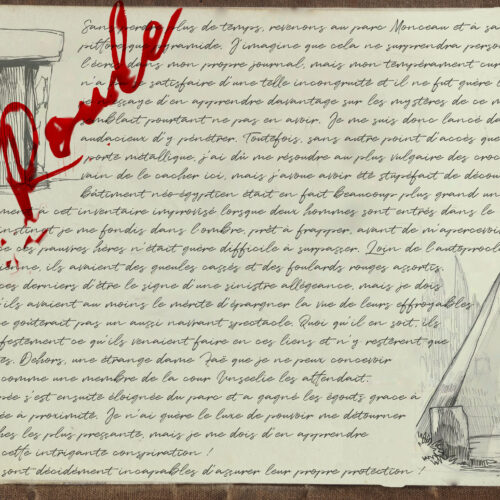 Sans perdre plus de temps, revenons au parc Monceau et à sa
pittoresque pyramide. J'imagine que cela ne surprendra perso
l'écrire dans mon propre journal, mais mon tempérament cur
n'a satisfaire d'une telle incongruité et il ne fut guère
d'en apprendre davantage sur les mystères de ce
semblait pourtant ne pas en avoir. Je me suis donc lancé da
audacieux d'y pénétrer. Toutefois, sans autre point d'accès que
porte métallique, j'ai dû me résoudre au plus vulgaire des croc
vain de le cacher ici, mais j'avoue avoir été stupéfait de décou
bâtiment néo-égyptien était en fait beaucoup plus grand
à cet inventaire improvisé lorsque deux hommes sont entrés dans le
instinct je me fondis dans l'ombre, prêt à frapper, avant de m'apercevoir
ces pauvres hères n'était guère difficile à surpasser. Loin de l'autoprocla
ils avaient des gueules cassés et des foulards rouges assortis.
ces derniers d'être le signe d'une sinistre allégeance, mais je dois
ils avaient au moins le mérite d'épargner la vue de leurs effroyables
goûterait pas un aussi navrant spectacle. Quoi qu'il en soit, ils
festement ce qu'ils venaient faire en ces lieux et n'y restèrent que
Dehors, une étrange dame Faë que je ne peux concevoir
comme une membre de la cour Unseelie les attendait.
s'est ensuite éloignée du parc et a gagné les égouts grâce à
à proximité. Je n'ai guère le luxe de pouvoir me détourner
les plus pressante, mais je me dois d'en apprendre
cette intrigante conspiration !
sont décidément incapables d'assurer leur propre protection !
Roule